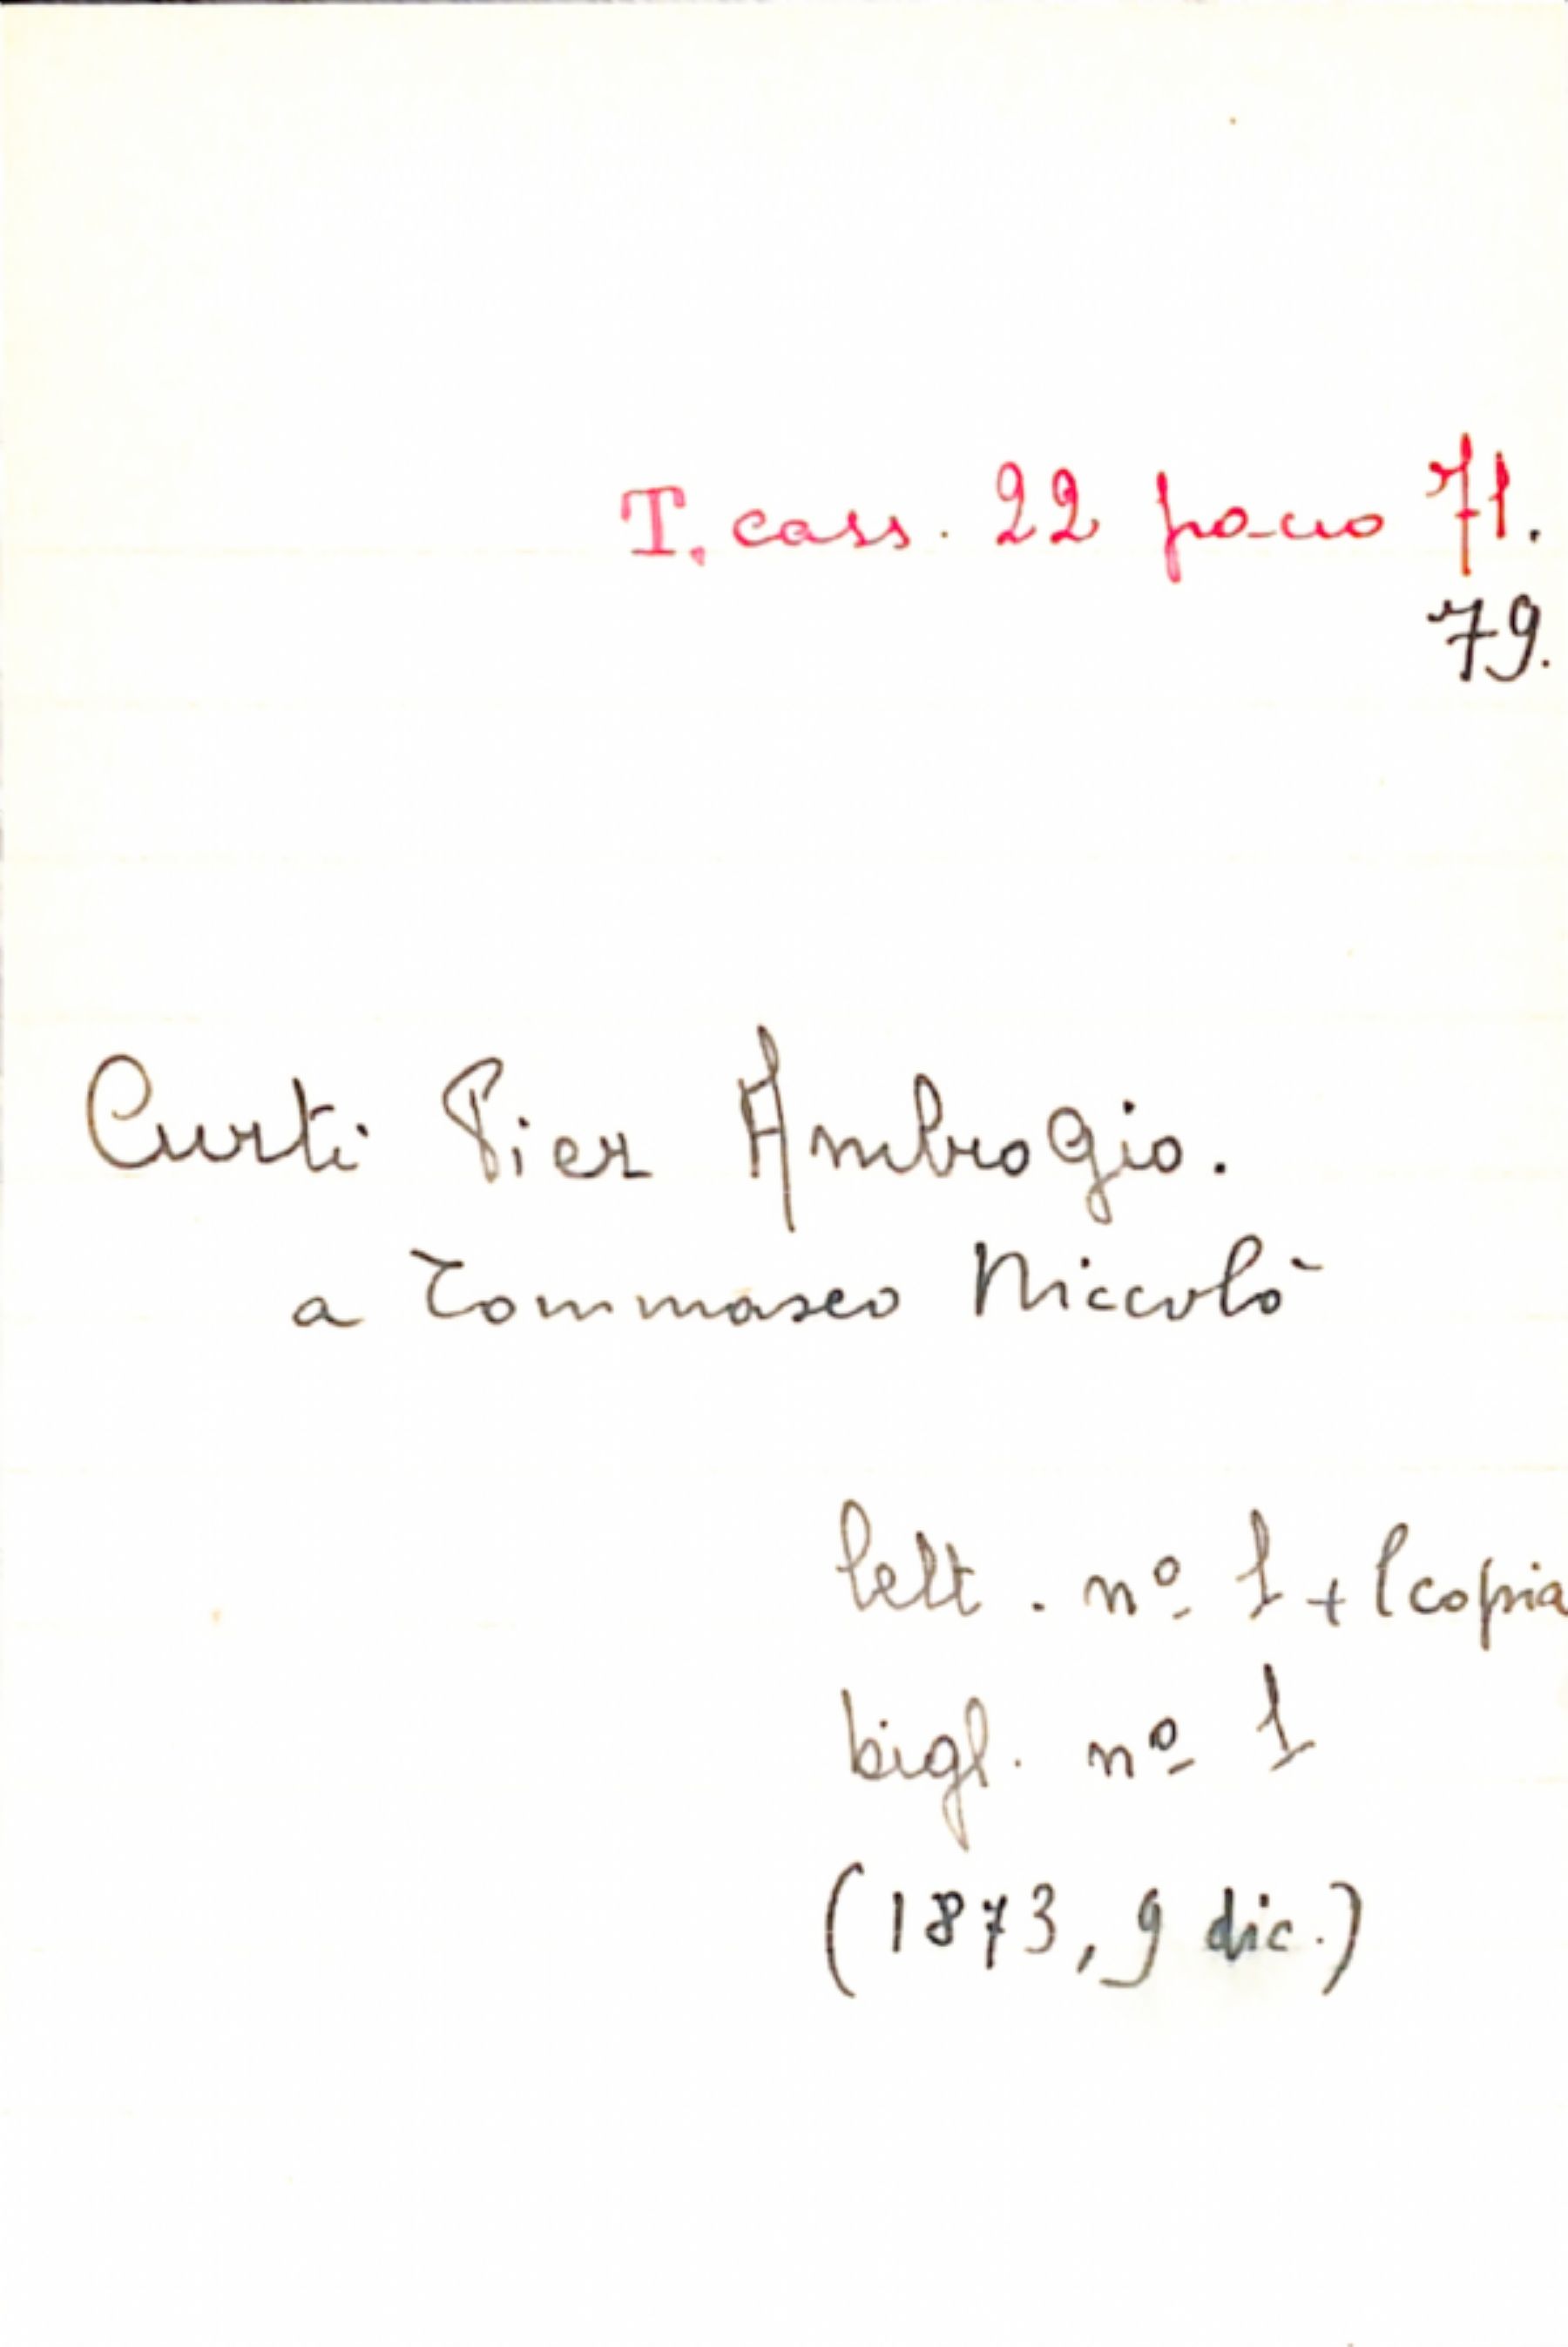 T. cass. 22 pacco 71.
79.
Curti Pier Ambrogio.
a Tommaseo Niccolò
lett. nº 1 + 1 copia
bigl. nº 1
(1873, 9 dic.)